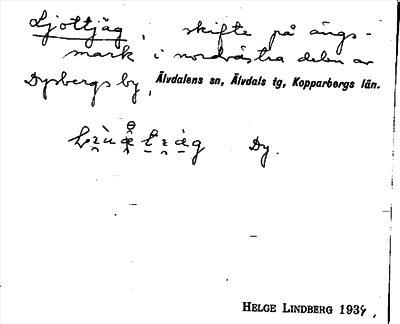 Ljöttjäg, skifte på ängs-
mark i nordvästra delen av
Dysbergs by, Älvdalens sn, Älvdals tg, Kopparbergs län.
Dy.
HELGE LINDBERG 1934.